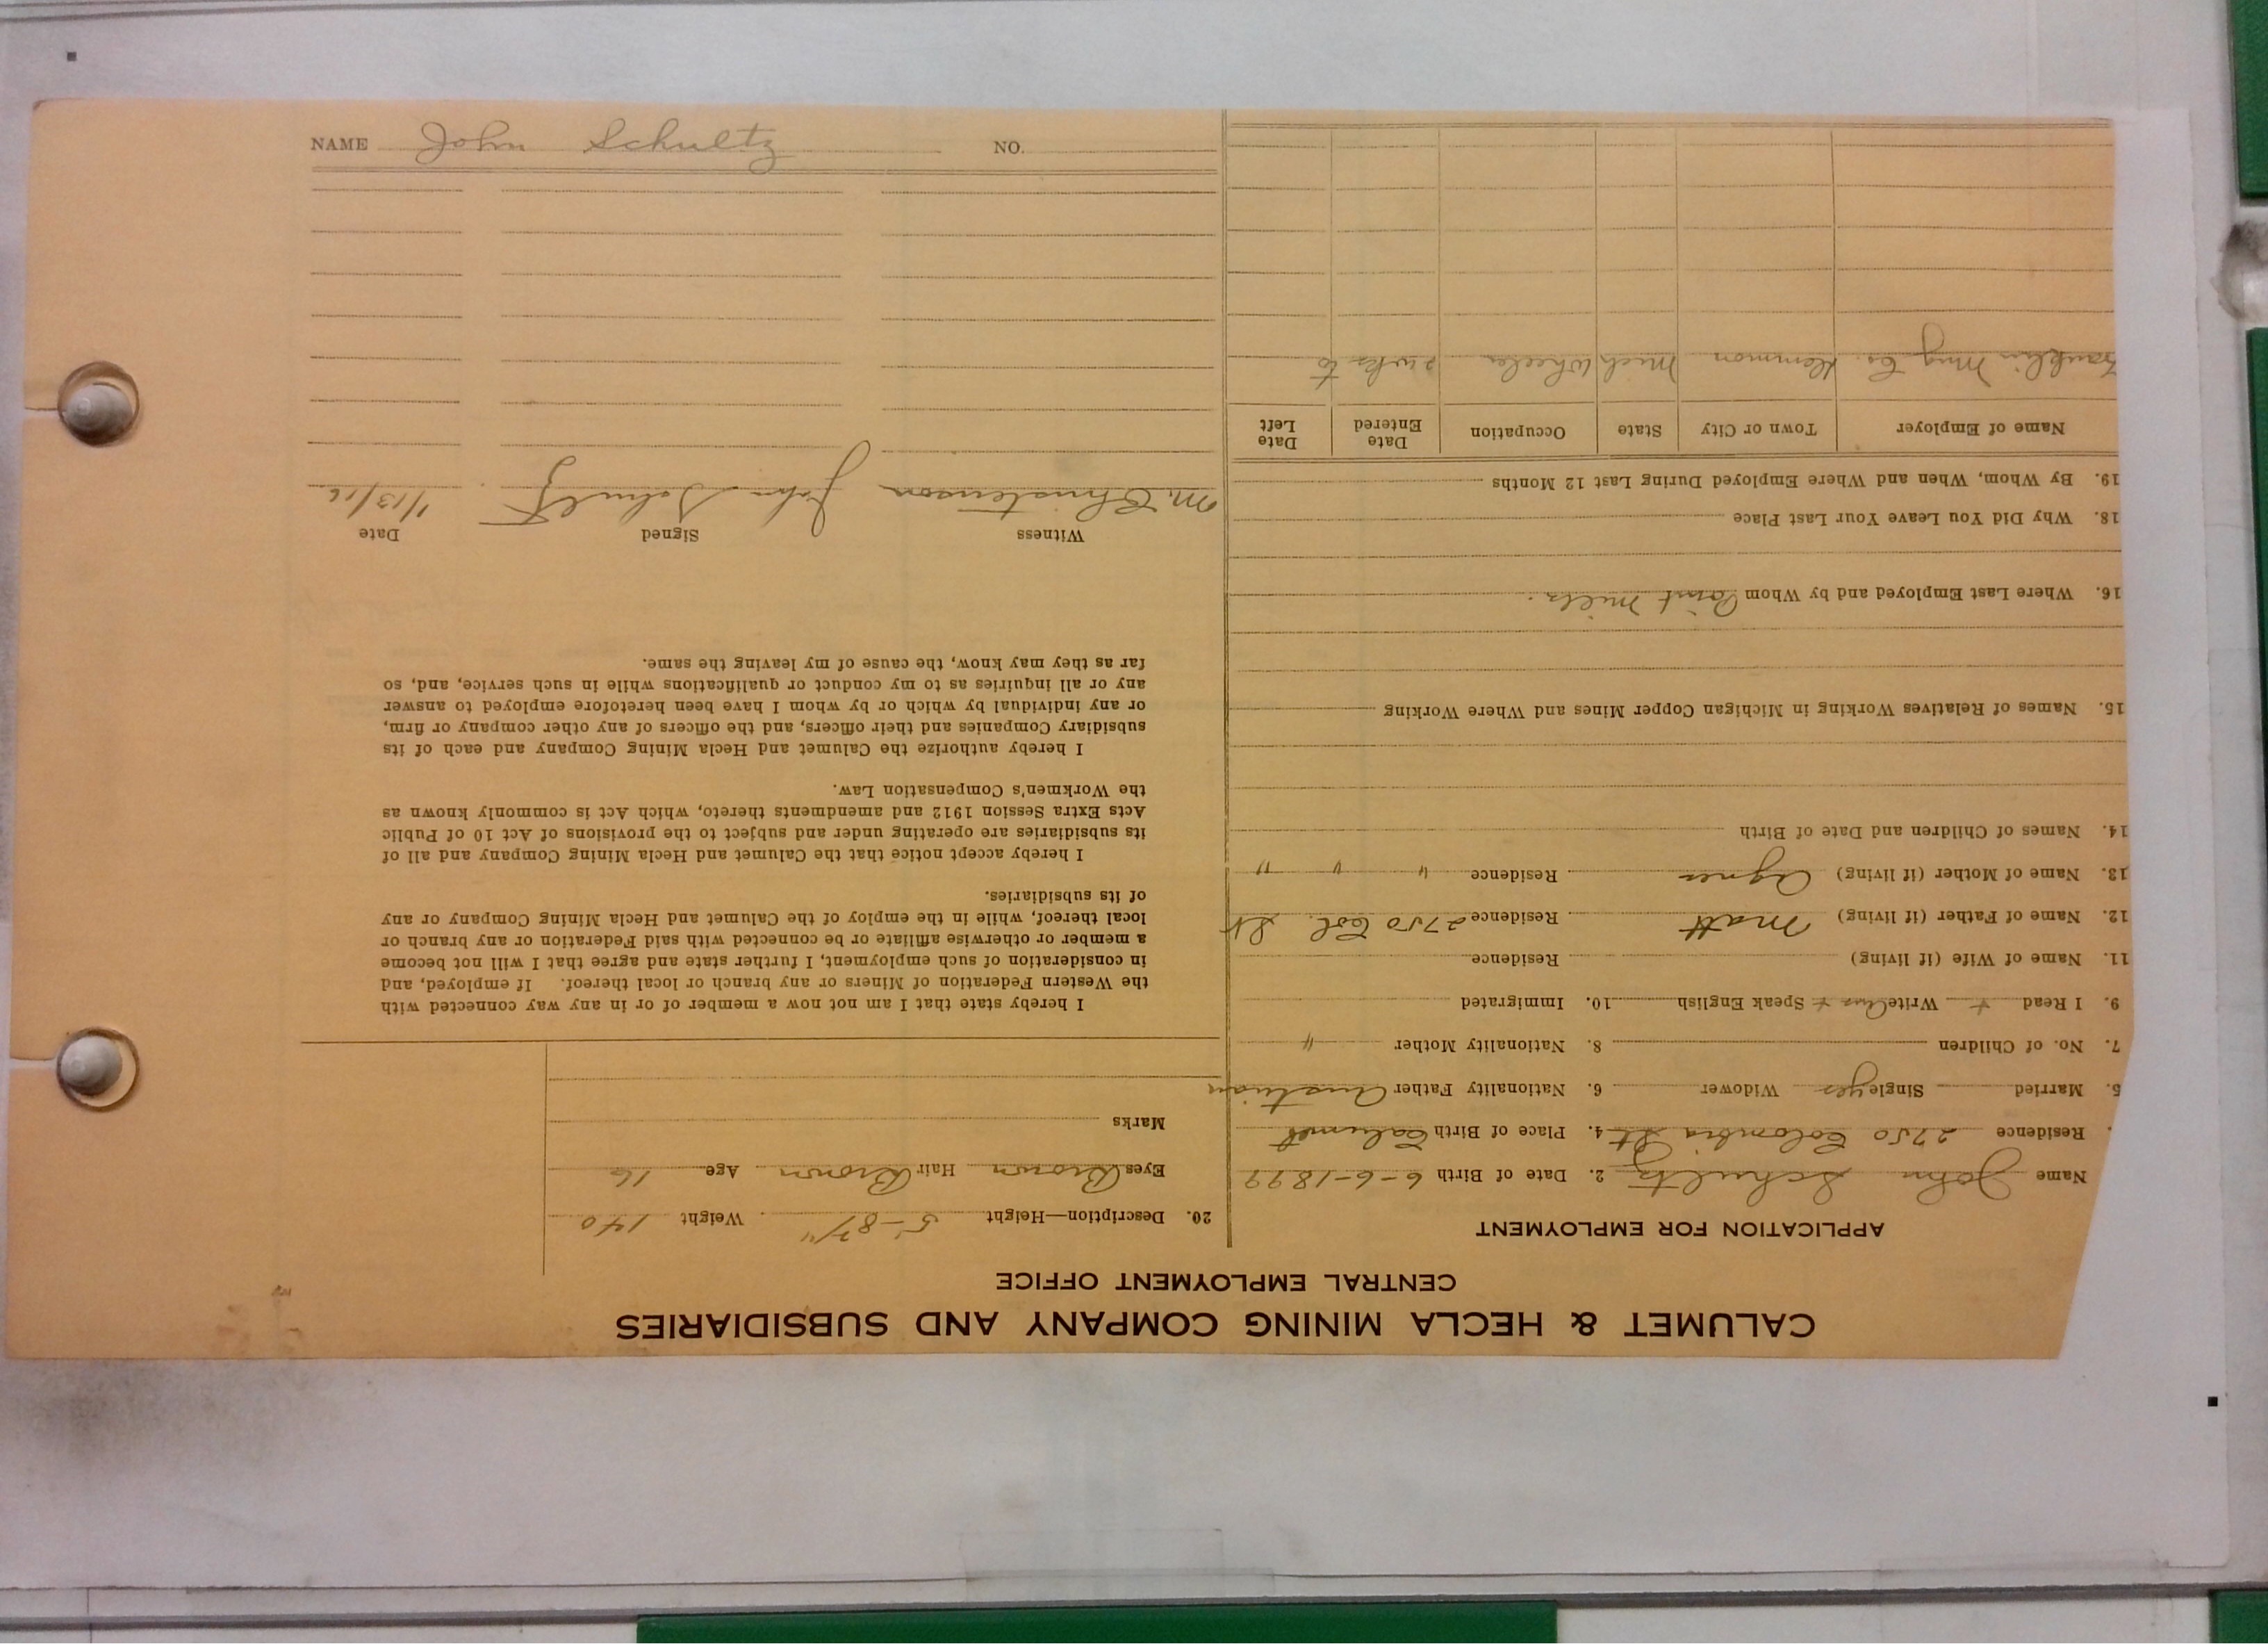 CALUMET & HECLA MINING COMPANY AND SUBSIDIARIES
CENTRAL EMPLOYMENT OFFICE
APPLICATION FOR EMPLOYMENT
Name John Schultz 2. Date of Birth 6-6-1899
Residence 2750 Colombia St 4. Place of Birth Calumet
5. Married Single yes Widower 6. Nationality Father Austrian
7. No. of Children 8. Nationality Mother "
9. I Read + Write Aus + Speak English 10. Immigrated
11. Name of Wife (if living) Residence
12. Name of Father (if living) Matt Residence 2750 Col. St
13. Name of Mother (if living) Agnes Residence " " "
14. Names of Children and Date of Birth
15. Names of Relatives Working in Michigan Copper Mines and Where Working
16. Where Last Employed and by Whom Point Mills.
18. Why Did You Leave Your Last Place
19. By Whom, When and Where Employed During Last 12 Months
Name of Employer Town or City State Occupation Date Entered Date Left
Franklin Mng Co. Mich Wheeler 2 wks to
20. Description—Height Weight 140
Eyes Brown Hair Brown Age 16
Marks
I hereby state that I am not now a member of or in any way connected with
the Western Federation of Miners or any branch or local thereof. If employed, and
in consideration of such employment, I further state and agree that I will not become
a member or otherwise affiliate or be connected with said Federation or any branch or
local thereof, while in the employ of the Calumet and Hecla Mining Company or any
of its subsidiaries.
I hereby accept notice that the Calumet and Hecla Mining Company and all of
its subsidiaries are operating under and subject to the provisions of Act 10 of Public
Acts Extra Session 1912 and amendments thereto, which Act is commonly known as
the Workmen's Compensation Law.
I hereby authorize the Calumet and Hecla Mining Company and each of its
subsidiary Companies and their officers, and the officers of any other company or firm,
or any individual by which or by whom I have been heretofore employed to answer
any or all inquiries as to my conduct or qualifications while in such service, and, so
far as they may know, the cause of my leaving the same.
Witness Signed Date
M. Christenson John Schultz 1/13/16
NAME John Schultz NO.